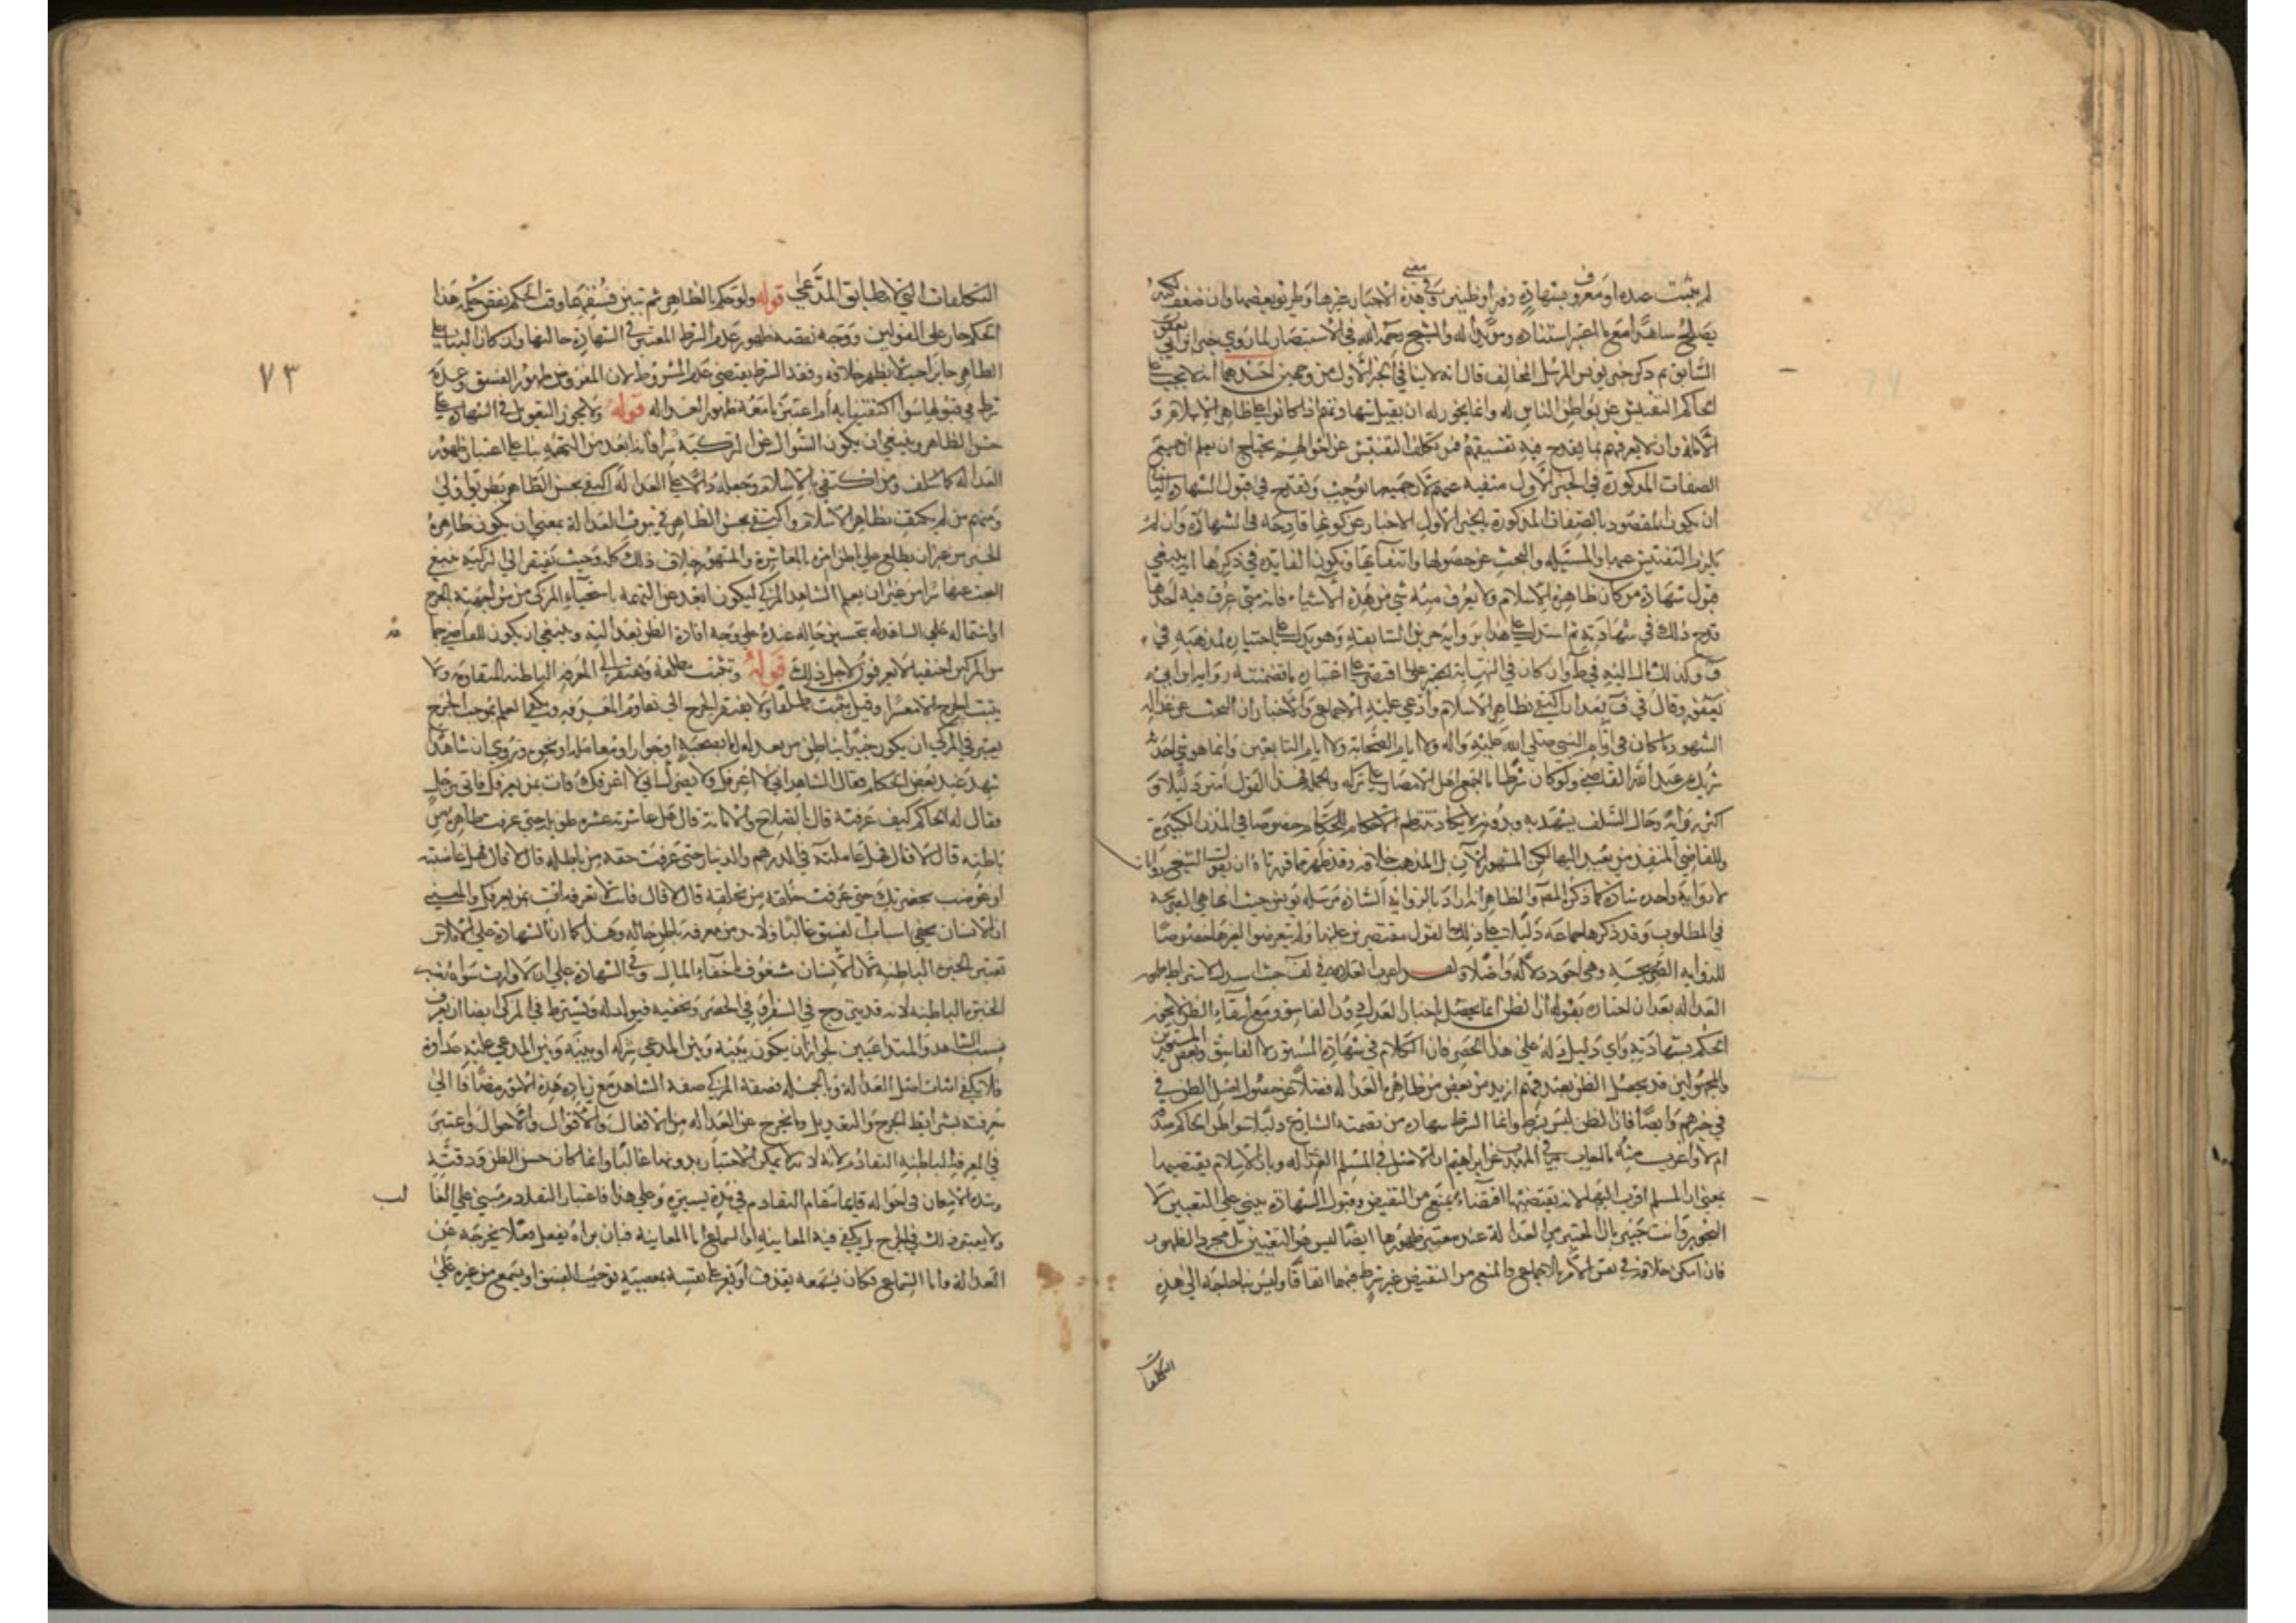 لم يثبت عنده او معروف بشهادة زور او ظنين وفي معنى هذه الاخبار غيرها وطريق بعضها وان ضعف لكنه
يصلح شاهدا مع ما اعتبر اسناده ومؤيدا له والشيخ رحمه الله في الاستبصار لما روي خبر ابن ابي يعفور
السابق ثم ذكر خبر يونس المرسل المخالف قال انه لا ينافي الخبر الاول من وجهين احدهما انه لا يجب على
الحاكم التفتيش عن بواطن الناس له وانما يجوز له ان يقبل شهادتهم اذا كانوا على ظاهر الاسلام و
الامانة وان لا يعرفهم بما يقدح فيه تفسيقهم فمتى تكلف التفتيش عن احوالهم يحتاج ان يعلم ان جميع
الصفات المذكورة في الخبر الاول منتفية عنهم لان جميعها توجب وتقدح في قبول الشهادة الثاني
ان يكون المقصود بالصفات المذكورة بالخبر الاول الاخبار عن كونها قادحة في الشهادة وان لم
يلزم التفتيش عنها والمسئلة والبحث عن حصولها وانتفائها وتكون الفايدة في ذكرها انه ينبغي
قبول شهادة من كان ظاهره الاسلام ولا يعرف منه شي من هذه الاشياء فانه متى عرف فيه احدها
قدح ذلك في شهادته ثم استدل على هذا برواية حريز السابقة وهو يدل على اختياره لمذهبه في
ف وكذلك مال اليه في ط وان كان في النهاية اقتضى اعتباره ما تضمنته رواية ابن ابي
يعفور وقال في ف بعد ان اكتفى بظاهر الاسلام وادعى عليه الاجماع والاخبار ان البحث عن عدالة
الشهود ما كان في ايام النبي صلى الله عليه واله ولا ايام الصحابة ولا ايام التابعين وانما هو شي احدثه
شريك بن عبد الله القاضي ولو كان شرطا ما اجمع اهل الامصار على تركه وبالجملة فهذا القول امتن دليلا و
اكثر رواية وحال السلف يشهد به وبدونه لا يكاد تنتظم الاحكام للحكام خصوصا في المدن الكبيرة
وللقاضي المنفذ من بعيد اليها لكن المشهور الآن بل المذهب خلافه وقد ظهر مما قررناه ان بقول الشيخ روايات
لا رواية واحدة شاذة كما ذكره المصنف والظاهر انه اراد بالرواية الشاذة مرسلة يونس حيث انها هي الصريحة
في المطلوب وقد ذكرها جماعة دليلا على ذلك القول مقتصرين عليها ولم يتعرضوا لغيرها خصوصا
للرواية الصحيحة وهي اجود دلالة واصلا ولقد اغرب العلامة في لف حيث استدل لاشتراط ظهور
العدالة بعد ان اختاره بقوله ان الظن انما يحصل باخبار العدل دون الفاسق ومع انتفاء الظن لا يجوز
الحكم بشهادته واي دليل دله على هذا الحصر فان الكلام في شهادة المستور لا الفاسق وبعض المستورين
والمجهولين قد يحصل الظن بصدقهم ازيد من بعض من ظاهره العدالة فضلا عن حصول اصل الظن في
في خبرهم وايضا فان الظن ليس بشرط وانما الشرط شهادة من نصبه الشارع دليلا سواء ظن الحاكم صدقه
ام لا واغرب منه ما اجاب في المهذب عن ابراهيم ان الاصل في المسلم العدالة وبان الاسلام يقتضيها
بمعنى ان المسلم اقرب اليها لا انه يقتضيها اقتضاء يمنع من النقيض وقبول الشهادة يبنى على التعيين لا
التجويز وانت خبير بان المعتبر من العدالة عند معتبر ظهورها ايضا ليس هو التعيين بل مجرد الظهور
فان امكن خلافه في نفس الامر بالاجماع والمنع من النقيض غير شرط فيهما اتفاقا وليس بنا حاجة الى هذه
التكلفات
التكلفات التي لا تطابق المدعى قوله ولو حكم بالظاهر ثم تبين فسقهما وقت الحكم نقض حكمه هذا
الحكم جار على القولين ووجه نقضه ظهور عدم الشرط المعتبر في الشهادة حالتها وان كان البناء على
الظاهر جايزا حيث لا يظهر خلافه وفقد الشرط يقتضي عدم المشروط لان المفروض ظهور الفسق وعدمه
شرط في قبولها سواء اكتفينا به ام اعتبرنا معه ظهور العدالة قوله ولا يجوز التعويل في الشهادة على
حسن الظاهر وينبغي ان يكون السؤال عن التزكية سرا فانه ابعد من التهمة بناء على اعتبار ظهور
العدالة كما سلف ومن اكتفى بالاسلام وجعله دالا على العدالة اكتفى بحسن الظاهر بطريق اولى
ومنهم من لم يكتف بظاهر الاسلام واكتفى بحسن الظاهر في ثبوت العدالة بمعنى ان يكون ظاهره
الخير من غير ان يطلع على باطن امره بالمعاشرة والمشهور خلاف ذلك كله وحيث يفتقر الى التزكية ينبغي
البحث عنها سرا من غير ان يعلم الشاهد المزكي ليكون ابعد عن التهمة باستحياء المزكي من مواجهته بالجرح
او اشتماله على الشاهد له بتحسين حاله عنده على وجه افادة الظن بعدالته وينبغي ان يكون للقاضي جماعة
من المزكين اخفياء لا يعرفون لاجل ذلك قوله وتثبت مطلقة وتفتقر الى المعرفة الباطنة المتقادمة ولا
يثبت الجرح الا مفسرا وقيل يثبت مطلقا ولا يفتقر الجرح الى تقادم المعرفة ويكفي العلم بموجب الجرح
يعتبر في المزكي ان يكون خبيرا بباطن من يعدله اما بصحبة او جوار او معاملة او نحوه وروي ان شاهدا
شهد عند بعض الحكام فقال للشاهد اني لا اعرفك ولا يضرك اني لا اعرفك فات بمن يعرفك فاتى برجل
فقال له الحاكم كيف عرفته قال بالصلاح والامانة قال هل عاشرته عشرة طويلة حتى عرفت ظاهره من
باطنه قال لا قال فهل عاملته في الدرهم والدينار حتى عرفت حقه من باطله قال لا قال فهل غاضبته
او غوضب بحضرتك حتى عرفت خلقه من تخلقه قال لا قال فانت لا تعرفه ائت بمن يعرفك والمعنى
ان الانسان يخفي اسباب الفسق غالبا ولا بد من معرفة باطن حاله وهذا كما ان الشهادة على الافلاس
تعتبر الخبرة الباطنة لان الانسان مشغوف باخفاء المال وفي الشهادة على ان لا وارث سواه تعتبر
الخبرة الباطنة لانه قد يتزوج في السفر او في الحضر ويخفيه فيولد له ويشترط في المزكي ايضا ان يعرف
نسب الشاهد والمتداعيين لجواز ان يكون بينه وبين المدعي شركة او بينه وبين المدعى عليه عداوة
فلا يكفي اثبات اصل العدالة وبالجملة فصفة المزكي صفة الشاهد مع زيادة هذه الامور مضافا الى
معرفته بشرايط الجرح والتعديل وما يخرج عن العدالة من الافعال والاقوال والاحوال واعتبر
في المعرفة الباطنة التقادم لانه لا يمكن الاختبار بدونها غالبا وانما كان حسن الظن ودقته
وشدة الامعان في احواله قايما مقام التقادم في مدة يسيرة وعلى هذا فاعتبار التقادم مبني على الغالب
ولا يعتبر ذلك في الجرح بل يكفي فيه المعاينة او السماع اما المعاينة فبان يراه يفعل فعلا يخرجه عن
العدالة واما السماع فكان يسمعه يقذف او يقر على نفسه بمعصية توجب الفسق او يسمع من غيره على
٧٣